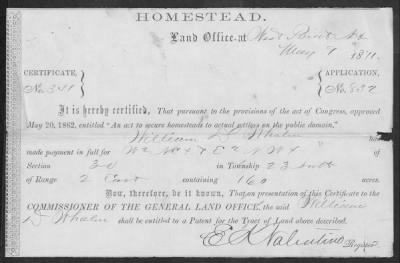 HOMESTEAD.
Land Office at West Point
May 7 1871.
CERTIFICATE, APPLICATION,
No. 341 No. 832
It is hereby certified, That pursuant to the provisions of the act of Congress, approved
May 20, 1862, entitled "An act to secure homesteads to actual settlers on the public domain,"
William D. Whalen has
made payment in full for of
Section 30 in Township 23
of Range 2 East containing 160 acres.
Now, therefore, be it known, That on presentation of this Certificate to the
COMMISSIONER OF THE GENERAL LAND OFFICE, the said William
D Whalen shall be entitled to a Patent for the Tract of Land above described.
E K Valentine
Register.